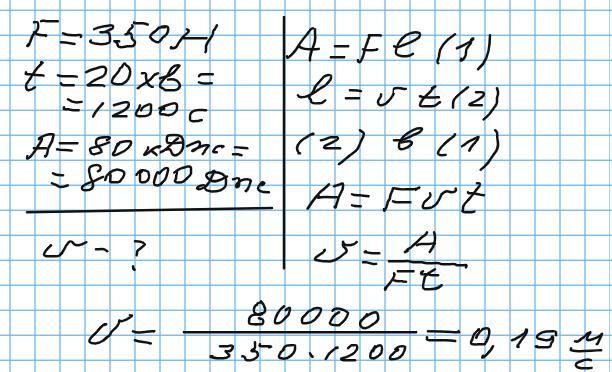 F = 350 Н
t = 20 хв =
= 1200 с
A = 80 кДж =
= 80000 Дж
υ - ?
A = Fℓ (1)
ℓ = υt (2)
(2) в (1)
A = Fυt
υ = A / Ft
υ = 80000 / 350·1200 = 0,19 м/с